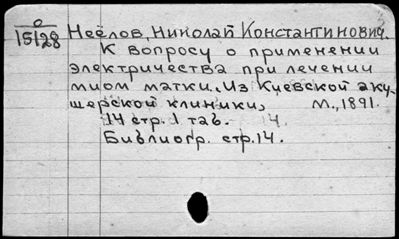 О
15128
Неёлов, Николай Константинович.
К вопросу о применении
электричества при лечении
миом матки. Из Киевской аку-
шерской клиники, М., 1891.
14 стр. 1 таб. 14.
Библиогр. стр. 14.